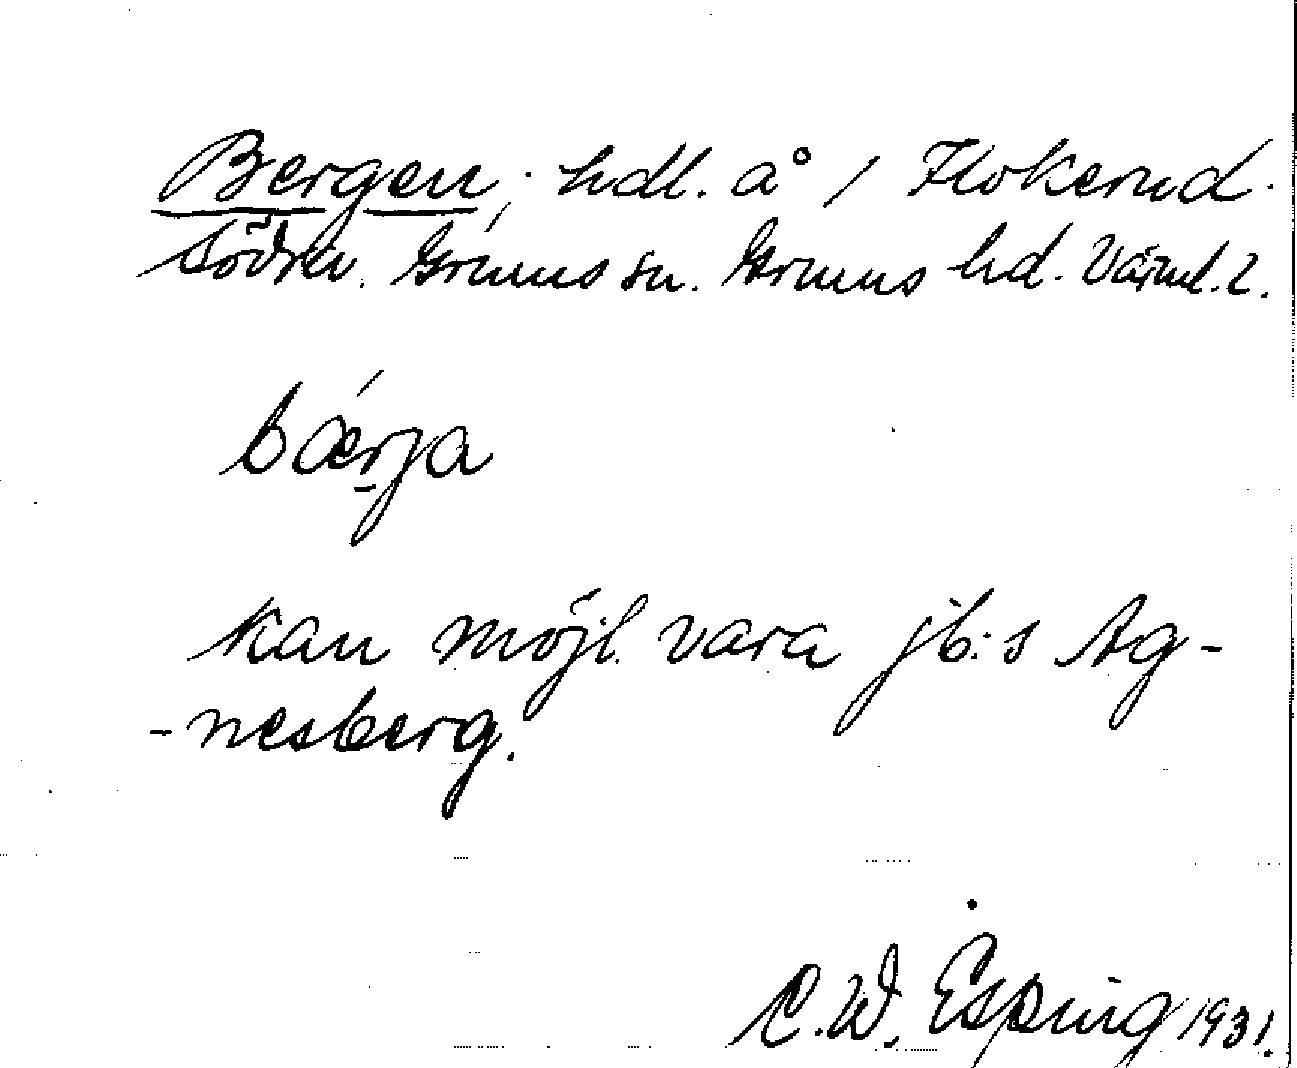 Bergen, hdl. å / Flokerud
Södra. Grums sn. Grums hd. Värml. l.
bǽrja
kan möjl. vara jb:s Ag-
-nesberg.
C. W. Esping 1931.